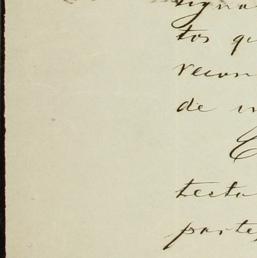 signa
tos qu
recon
de in
C
tecta
partes